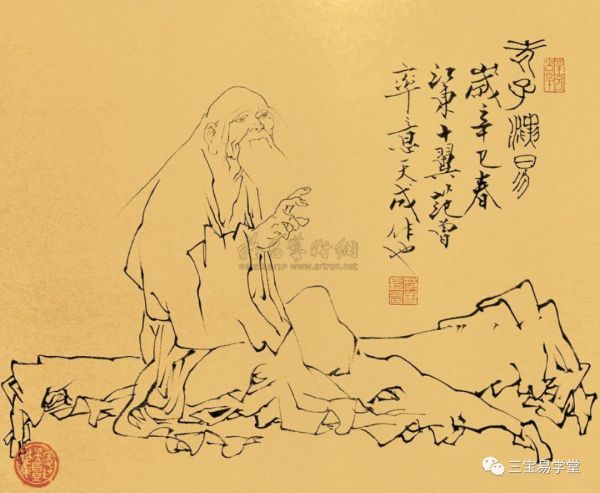 老子演易
歲辛巳春
江東十翼范曾
率意天成作也
雅昌藝術網
www.artron.net
三宝易学堂